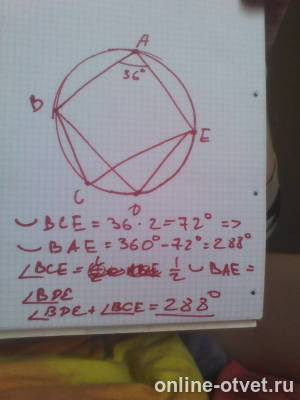 A
36°
B
E
C
D
◡ BCE = 36 · 2 = 72° =>
◡ BAE = 360° - 72° = 288°
∠BCE = 1/2 ◡ BAE =
∠BDE
∠BDE + ∠BCE = 288°
online-otvet.ru